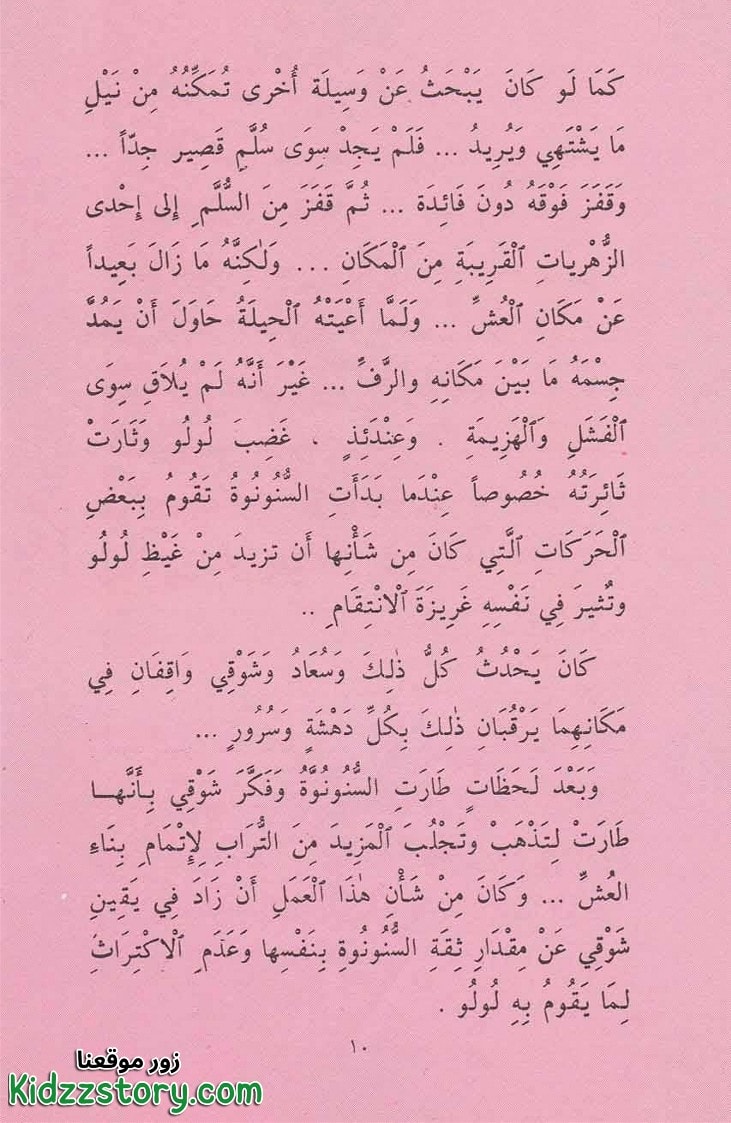 كَمَا لَو كَانَ يَبْحَثُ عَنْ وَسِيلَة أُخْرى تُمَكِّنُهُ مِنْ نَيْلِ
مَا يَشْتَهِي وَيُرِيدُ ... فَلَمْ يَجِدْ سِوَى سُلَّمٍ قَصِير جِدّاً ...
وَقَفَزَ فَوْقَهُ دُونَ فَائِدَة ... ثُمَّ قَفَزَ مِنَ السُّلَّمِ إِلى إِحْدى
الزُّهْرِياتِ ٱلْقَرِيبَةِ مِنَ ٱلْمَكَانِ ... وَلٰكِنَّهُ مَا زَالَ بَعِيداً
عَنْ مَكَانِ ٱلْعُشِّ ... وَلَمَّا أَعْيَتْهُ ٱلْحِيلَةُ حَاوَلَ أَنْ يَمُدَّ
جِسْمَهُ مَا بَيْنَ مَكَانِهِ والرَّفِّ ... غَيْرَ أَنَّهُ لَمْ يُلاَقِ سِوَى
ٱلْفَشَلِ وَٱلْهَزِيمَةِ . وَعِنْدَئِذٍ . غَضِبَ لُولُو وَثَارَتْ
ثَائِرَتُهُ خُصُوصاً عِنْدَما بَدَأَتِ السُّنُونُوةُ تَقُومُ بِبَعْضِ
ٱلْحَرَكَاتِ ٱلَّتِي كَانَ مِن شَأْنِها أَن تزيدَ مِنْ غَيْظِ لُولُو
وتُثيرَ فِي نَفْسِهِ غَرِيزَةَ ٱلْانْتِقَامِ ..
كَانَ يَحْدُثُ كُلُّ ذٰلِكَ وَسُعَادُ وَشَوْقِي وَاقِفَانِ فِي
مَكَانِهِمَا يَرْقُبَانِ ذٰلِكَ بِكُلِّ دَهْشَةٍ وَسُرُورٍ ...
وَبَعْدَ لَحَظَاتٍ طَارَتِ السُّنُونُوَّةُ وَفَكَّرَ شَوْقِي بِأَنَّهـا
طَارَتْ لِتَذْهَبْ وتَجْلُبَ ٱلْمَزِيدَ مِنَ التُّرَابِ لِإِتْمَامِ بِنَاءِ
العُشِّ ... وَكَانَ مِنْ شَأْنِ هٰذَا ٱلْعَمَلِ أَنْ زَادَ فِي يَقِينِ
شَوْقِي عَنْ مِقْدَارِ ثِقَةِ السُّنُونُوةِ بِنَفْسِها وَعَدَمِ ٱلْاكْتِرَاثِ
لِمَا يَقُومُ بِهِ لُولُو .
١٠
زور موقعنا
Kidzzstory.com